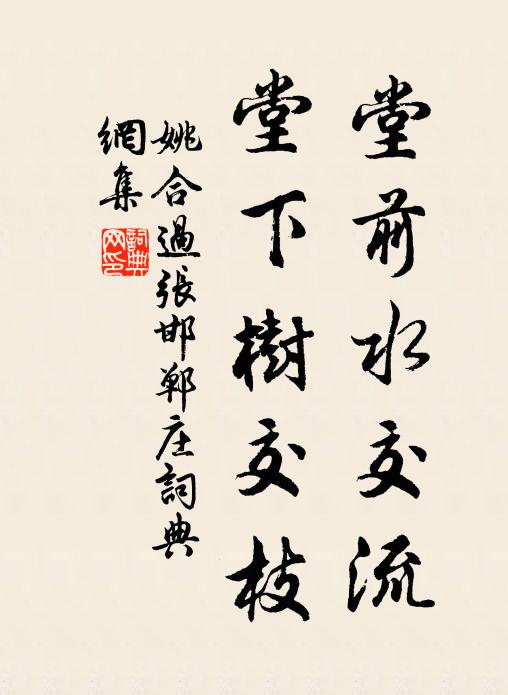 堂前水交流
堂下樹交枝
姚合過張邯鄲庄詞典
網集
詞典網印